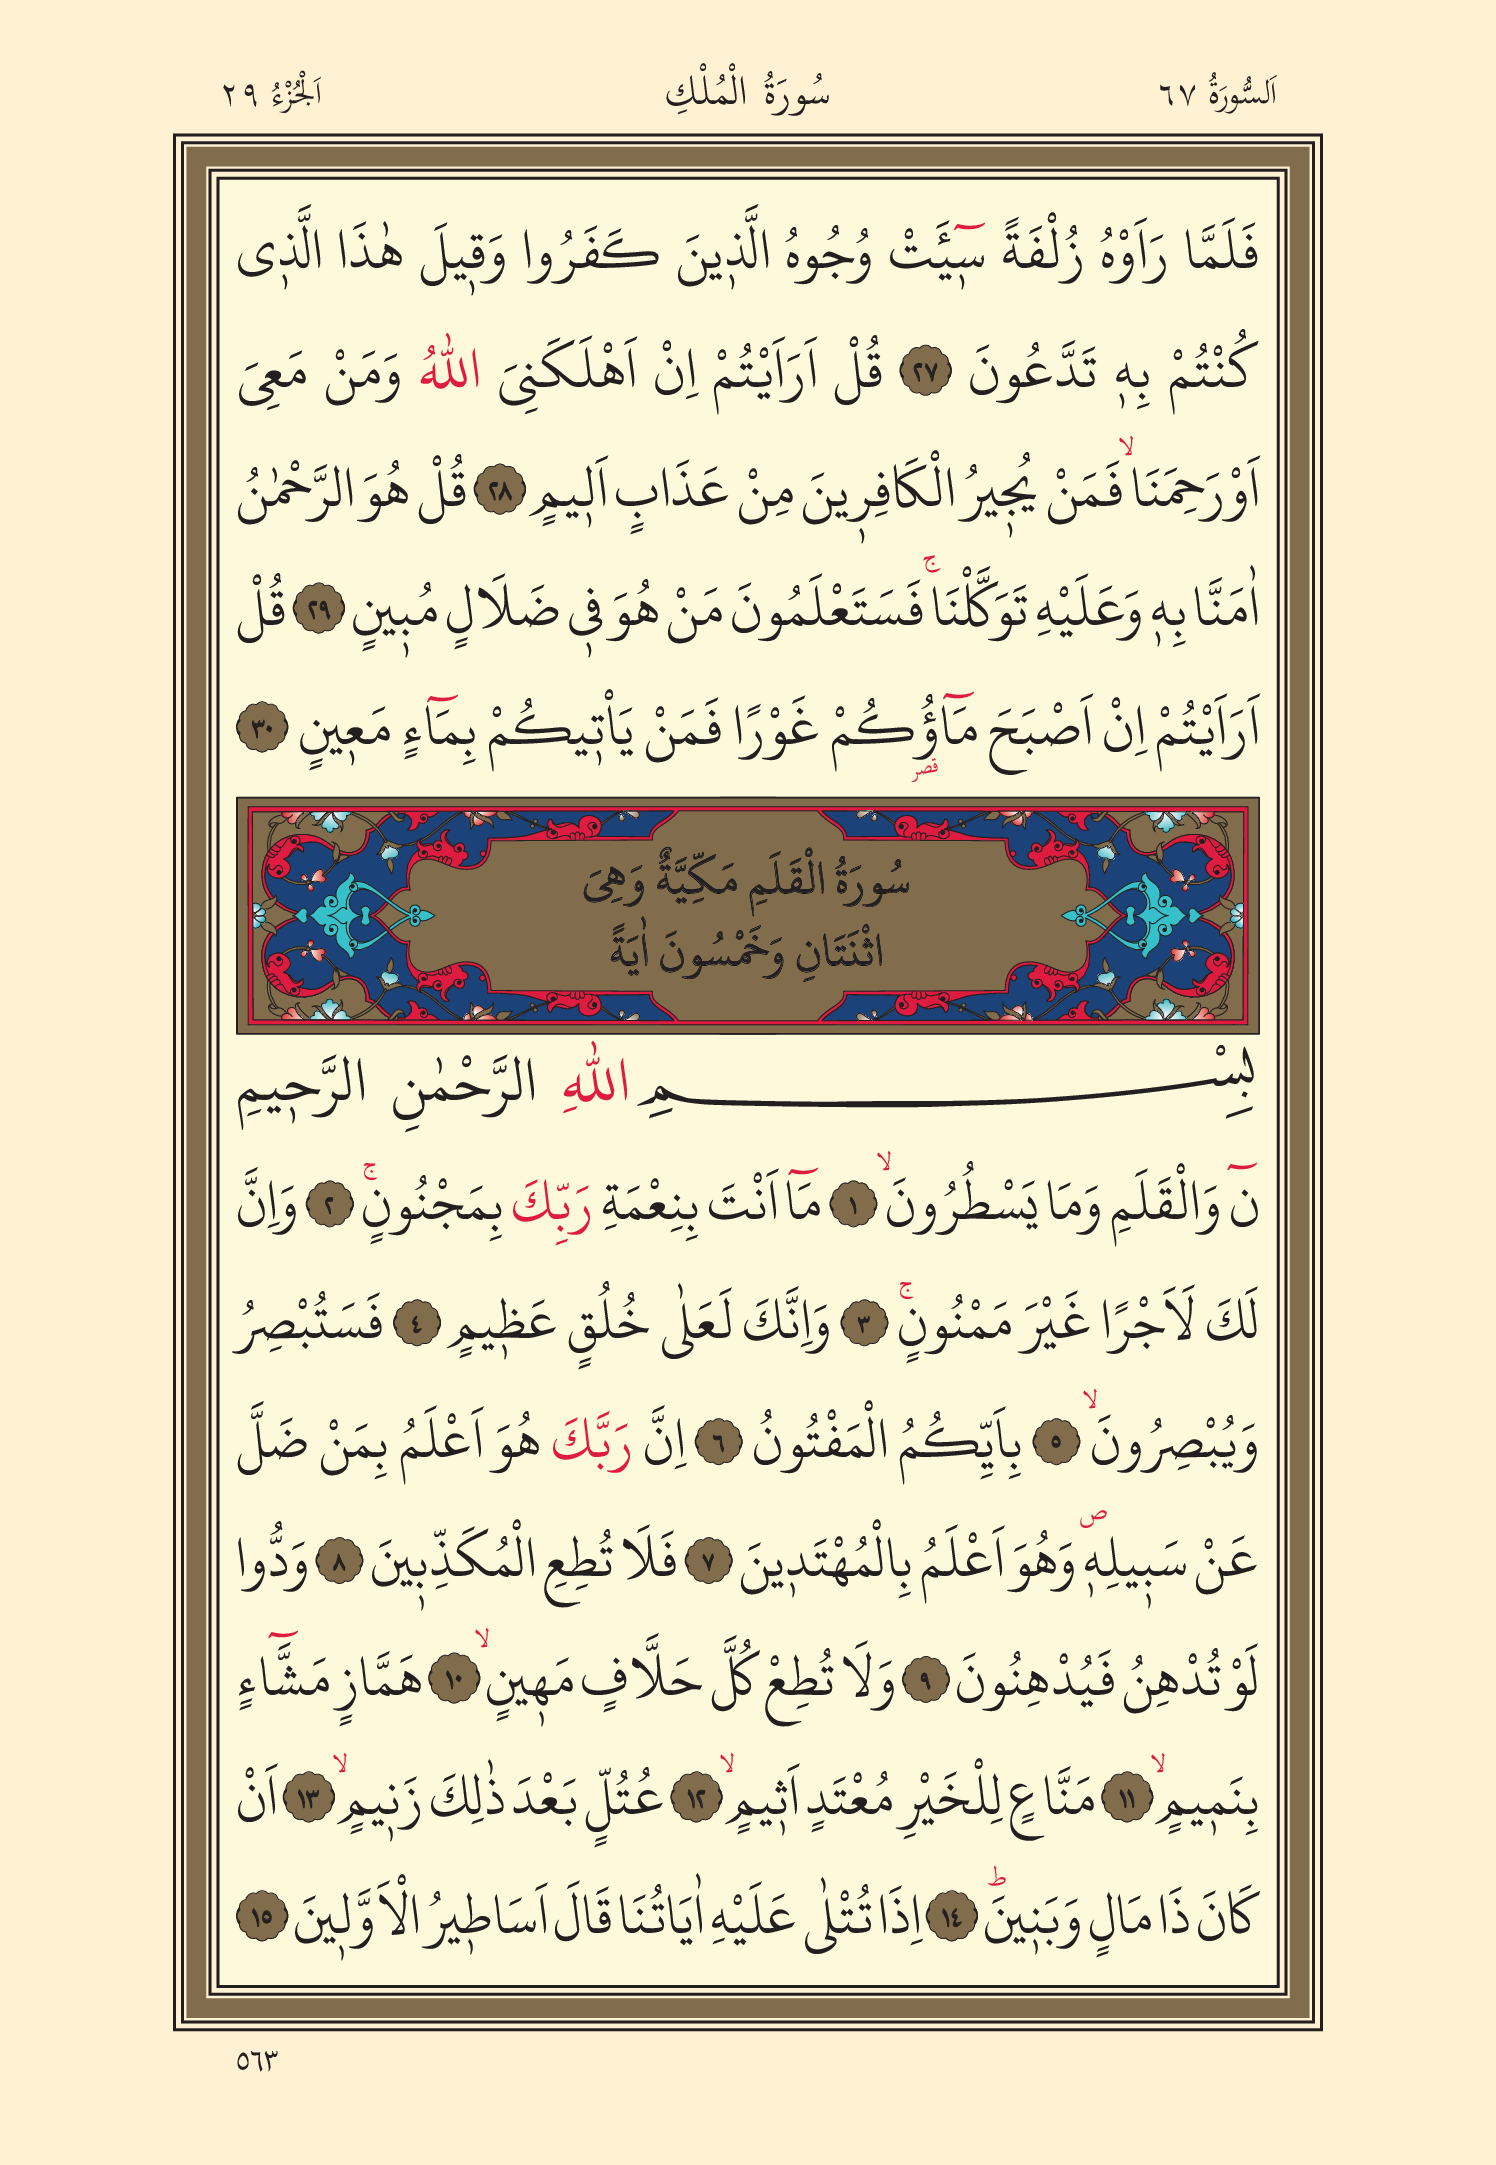 اَلسُّورَةُ ٦٧ سُورَةُ الْمُلْكِ اَلْجُزْءُ ٢٩
فَلَمَّا رَاَوْهُ زُلْفَةً سٖٓيـَٔتْ وُجُوهُ الَّذٖينَ كَفَرُوا وَقٖيلَ هٰذَا الَّذٖى
كُنْتُمْ بِهٖ تَدَّعُونَ ٢٧ قُلْ اَرَاَيْتُمْ اِنْ اَهْلَكَنِىَ اللّٰهُ وَمَنْ مَعِىَ
اَوْ رَحِمَنَاۙ فَمَنْ يُجٖيرُ الْكَافِرٖينَ مِنْ عَذَابٍ اَلٖيمٍ ٢٨ قُلْ هُوَ الرَّحْمٰنُ
اٰمَنَّا بِهٖ وَعَلَيْهِ تَوَكَّلْنَاۚ فَسَتَعْلَمُونَ مَنْ هُوَ فٖى ضَلَالٍ مُبٖينٍ ٢٩ قُلْ
اَرَاَيْتُمْ اِنْ اَصْبَحَ مَٓاؤُكُمْ غَوْرًا فَمَنْ يَاْتٖيكُمْ بِمَٓاءٍ مَعٖينٍ ٣٠
قصر
سُورَةُ الْقَلَمِ مَكِّيَّةٌ وَهِىَ
اثْنَتَانِ وَخَمْسُونَ اٰيَةً
بِسْمِ اللّٰهِ الرَّحْمٰنِ الرَّحٖيمِ
نٓ وَالْقَلَمِ وَمَا يَسْطُرُونَۙ ١ مَٓا اَنْتَ بِنِعْمَةِ رَبِّكَ بِمَجْنُونٍۚ ٢ وَاِنَّ
لَكَ لَاَجْرًا غَيْرَ مَمْنُونٍۚ ٣ وَاِنَّكَ لَعَلٰى خُلُقٍ عَظٖيمٍ ٤ فَسَتُبْصِرُ
وَيُبْصِرُونَۙ ٥ بِاَيِّكُمُ الْمَفْتُونُ ٦ اِنَّ رَبَّكَ هُوَ اَعْلَمُ بِمَنْ ضَلَّ
عَنْ سَبٖيلِهٖࣕ وَهُوَ اَعْلَمُ بِالْمُهْتَدٖينَ ٧ فَلَا تُطِعِ الْمُكَذِّبٖينَ ٨ وَدُّوا
لَوْ تُدْهِنُ فَيُدْهِنُونَ ٩ وَلَا تُطِعْ كُلَّ حَلَّافٍ مَهٖينٍۙ ١٠ هَمَّازٍ مَشَّٓاءٍ
بِنَمٖيمٍۙ ١١ مَنَّاعٍ لِلْخَيْرِ مُعْتَدٍ اَثٖيمٍۙ ١٢ عُتُلٍّ بَعْدَ ذٰلِكَ زَنٖيمٍۙ ١٣ اَنْ
كَانَ ذَا مَالٍ وَبَنٖينَؕ ١٤ اِذَا تُتْلٰى عَلَيْهِ اٰيَاتُنَا قَالَ اَسَاطٖيرُ الْاَوَّلٖينَ ١٥
٥٦٣